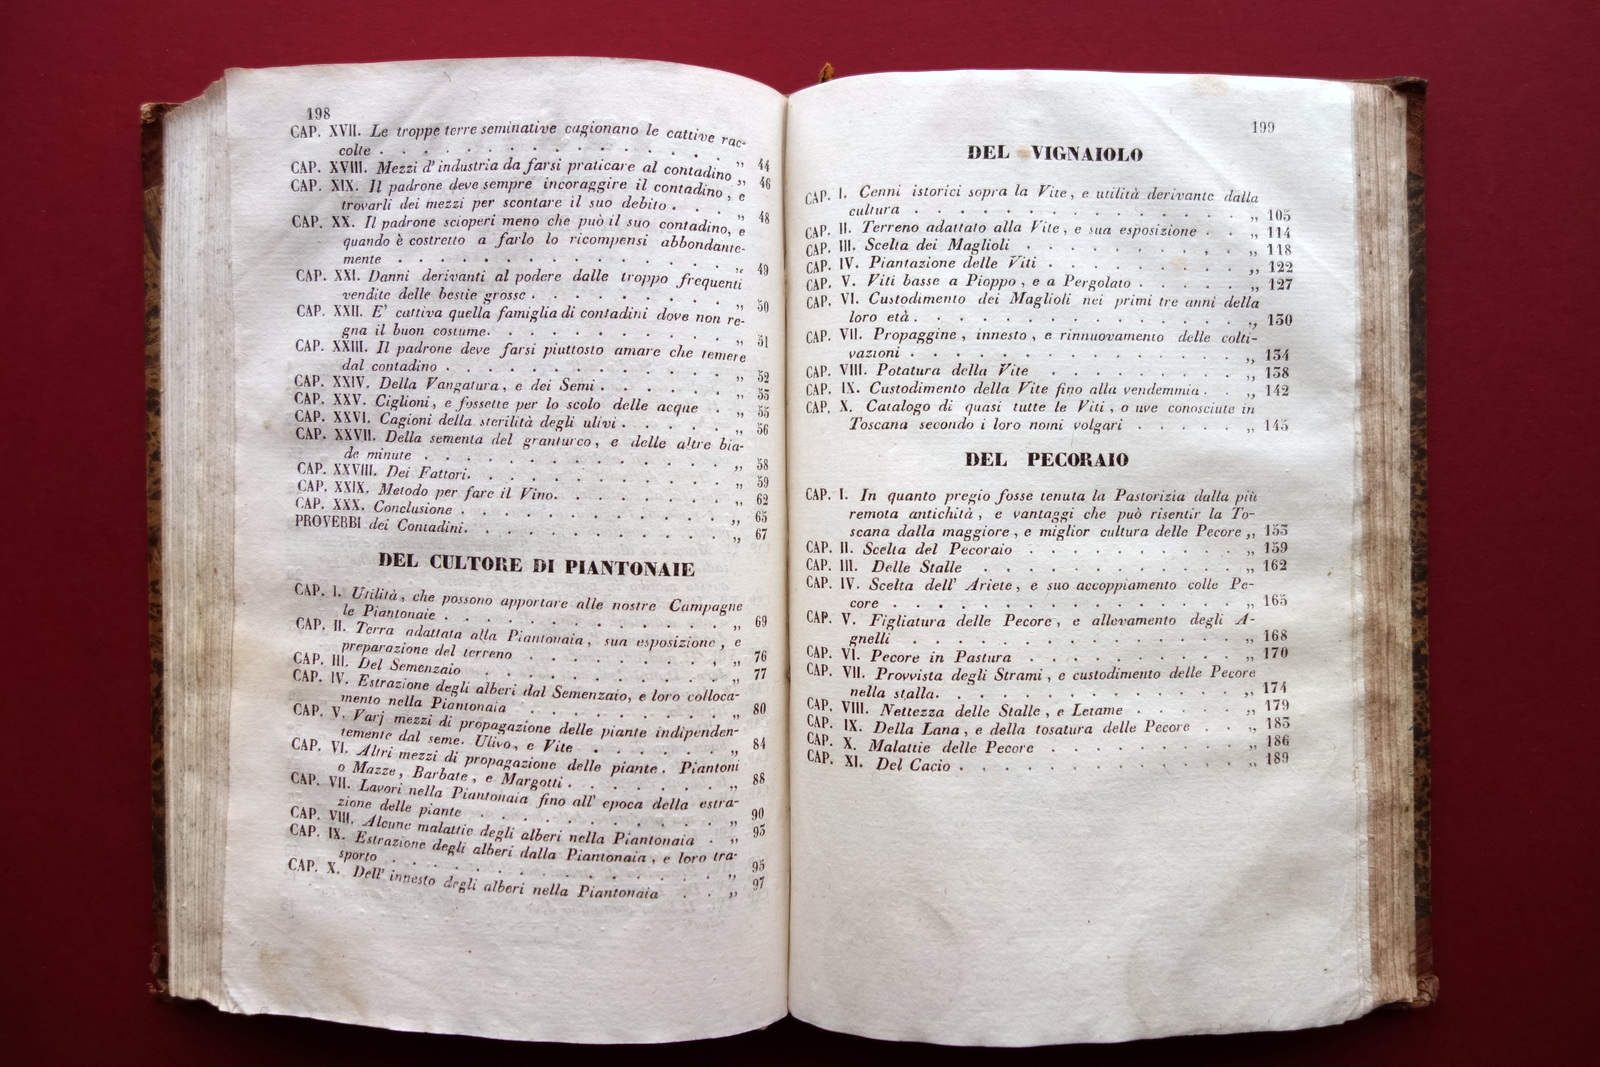 198
CAP. XVII. Le troppe terre seminative cagionano le cattive rac-
colte . . . . . . . . . . . . . ,, 44
CAP. XVIII. Mezzi d'industria da farsi praticare al contadino ,, 46
CAP. XIX. Il padrone deve sempre incoraggire il contadino, e
trovarli dei mezzi per scontare il suo debito . . . ,, 48
CAP. XX. Il padrone scioperi meno che può il suo contadino, e
quando è costretto a farlo lo ricompensi abbondante-
mente . . . . . . . . . . . . . ,, 49
CAP. XXI. Danni derivanti al podere dalle troppo frequenti
vendite delle bestie grosse . . . . . . . . ,, 50
CAP. XXII. E' cattiva quella famiglia di contadini dove non re-
gna il buon costume. . . . . . . . . . ,, 51
CAP. XXIII. Il padrone deve farsi piuttosto amare che temere
dal contadino . . . . . . . . . . . ,, 52
CAP. XXIV. Della Vangatura, e dei Semi . . . . . . ,, 53
CAP. XXV. Ciglioni, e fossette per lo scolo delle acque . . ,, 55
CAP. XXVI. Cagioni della sterilità degli ulivi . . . . . ,, 56
CAP. XXVII. Della sementa del granturco, e delle altre bia-
de minute . . . . . . . . . . . . ,, 58
CAP. XXVIII. Dei Fattori. . . . . . . . . . . ,, 59
CAP. XXIX. Metodo per fare il Vino. . . . . . . . ,, 62
CAP. XXX. Conclusione . . . . . . . . . . . ,, 65
PROVERBI dei Contadini. . . . . . . . . . . ,, 67
DEL CULTORE DI PIANTONAIE
CAP. I. Utilità, che possono apportare alle nostre Campagne
le Piantonaie . . . . . . . . . . . ,, 69
CAP. II. Terra adattata alla Piantonaia, sua esposizione, e
preparazione del terreno . . . . . . . . ,, 76
CAP. III. Del Semenzaio . . . . . . . . . . ,, 77
CAP. IV. Estrazione degli alberi dal Semenzaio, e loro colloca-
mento nella Piantonaia . . . . . . . . ,, 80
CAP. V. Varj mezzi di propagazione delle piante indipenden-
temente dal seme. Ulivo, e Vite . . . . . . ,, 84
CAP. VI. Altri mezzi di propagazione delle piante. Piantoni
o Mazze, Barbate, e Margotti . . . . . . . ,, 88
CAP. VII. Lavori nella Piantonaia fino all' epoca della estra-
zione delle piante . . . . . . . . . . ,, 90
CAP. VIII. Alcune malattie degli alberi nella Piantonaia . ,, 93
CAP. IX. Estrazione degli alberi dalla Piantonaia, e loro tra-
sporto . . . . . . . . . . . . . ,, 95
CAP. X. Dell' innesto degli alberi nella Piantonaia . . ,, 97
199
DEL VIGNAIOLO
CAP. I. Cenni istorici sopra la Vite, e utilità derivante dalla
cultura . . . . . . . . . . . . . ,, 105
CAP. II. Terreno adattato alla Vite, e sua esposizione . . ,, 114
CAP. III. Scelta dei Maglioli . . . . . . . . . ,, 118
CAP. IV. Piantazione delle Viti . . . . . . . . ,, 122
CAP. V. Viti basse a Pioppo, e a Pergolato . . . . . ,, 127
CAP. VI. Custodimento dei Maglioli nei primi tre anni della
loro età . . . . . . . . . . . . . ,, 130
CAP. VII. Propaggine, innesto, e rinnuovamento delle colti-
vazioni . . . . . . . . . . . . . ,, 134
CAP. VIII. Potatura della Vite . . . . . . . . ,, 138
CAP. IX. Custodimento della Vite fino alla vendemmia . . ,, 142
CAP. X. Catalogo di quasi tutte le Viti, o uve conosciute in
Toscana secondo i loro nomi volgari . . . . . ,, 145
DEL PECORAIO
CAP. I. In quanto pregio fosse tenuta la Pastorizia dalla più
remota antichità, e vantaggi che può risentir la To-
scana dalla maggiore, e miglior cultura delle Pecore ,, 153
CAP. II. Scelta del Pecoraio . . . . . . . . . ,, 159
CAP. III. Delle Stalle . . . . . . . . . . . ,, 162
CAP. IV. Scelta dell' Ariete, e suo accoppiamento colle Pe-
core . . . . . . . . . . . . . . ,, 165
CAP. V. Figliatura delle Pecore, e allevamento degli A-
gnelli . . . . . . . . . . . . . ,, 168
CAP. VI. Pecore in Pastura . . . . . . . . . ,, 170
CAP. VII. Provvista degli Strami, e custodimento delle Pecore
nella stalla. . . . . . . . . . . . ,, 174
CAP. VIII. Nettezza delle Stalle, e Letame . . . . . ,, 179
CAP. IX. Della Lana, e della tosatura delle Pecore . . ,, 183
CAP. X. Malattie delle Pecore . . . . . . . . ,, 186
CAP. XI. Del Cacio . . . . . . . . . . . . ,, 189